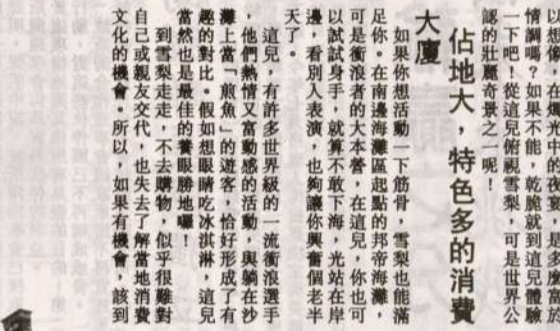 情調嗎?如果不能,乾脆就到這兒體驗
一下吧!從這兒俯視雪梨,可是世界公
認的壯麗奇景之一呢!
佔地大,特色多的消費
大廈
如果你想活動一下筋骨,雪梨也能滿
足你。在南邊海灘區起點的邦帝海灘,
可是衝浪者的大本營,在這兒,你也可
以試試身手,就算不敢下海,光站在岸
邊,看別人表演,也夠讓你興奮個老半
天了。
這兒,有許多世界級的一流衝浪選手
,他們熱情又當動感的活動,與躺在沙
灘上當「煎魚」的遊客,恰好形成了有
趣的對比。假如想眼睛吃冰淇淋,這兒
當然也是最佳的養眼勝地囉!
到雪梨走走,不去購物,似乎很難對
自己或親友交代,也失去了解當地消費
文化的機會。所以,如果有機會,該到